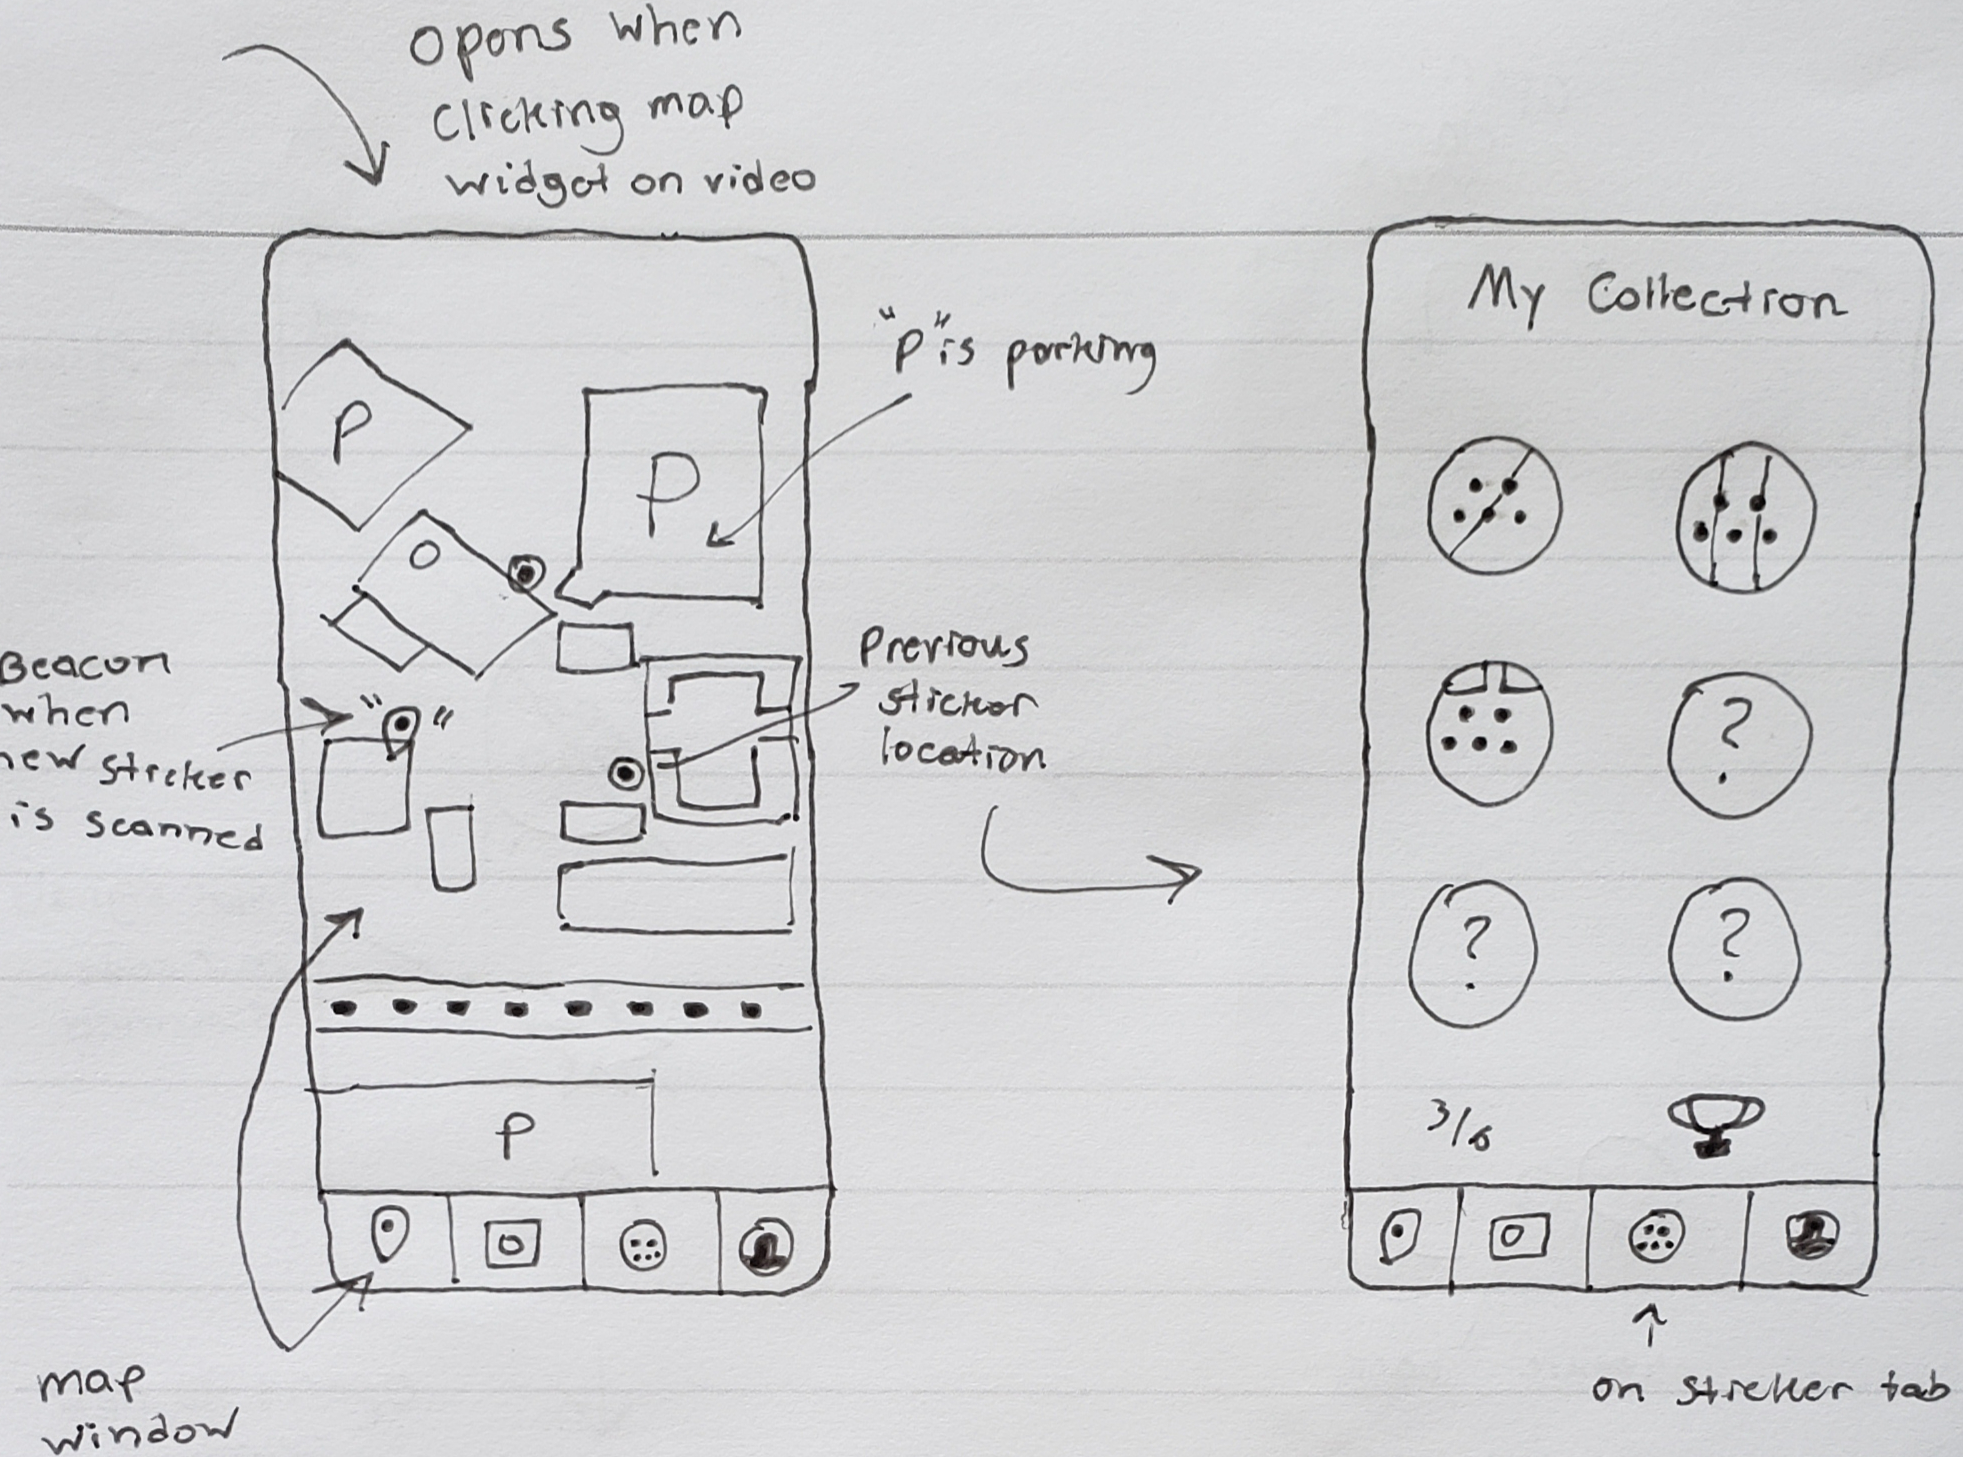 opens when
clicking map
widget on video
P
P
"P" is parking
O
Beacon
when
new sticker
is scanned
" "
Previous
sticker
location
P
map
window
My Collection
?
?
?
3/6
on sticker tab